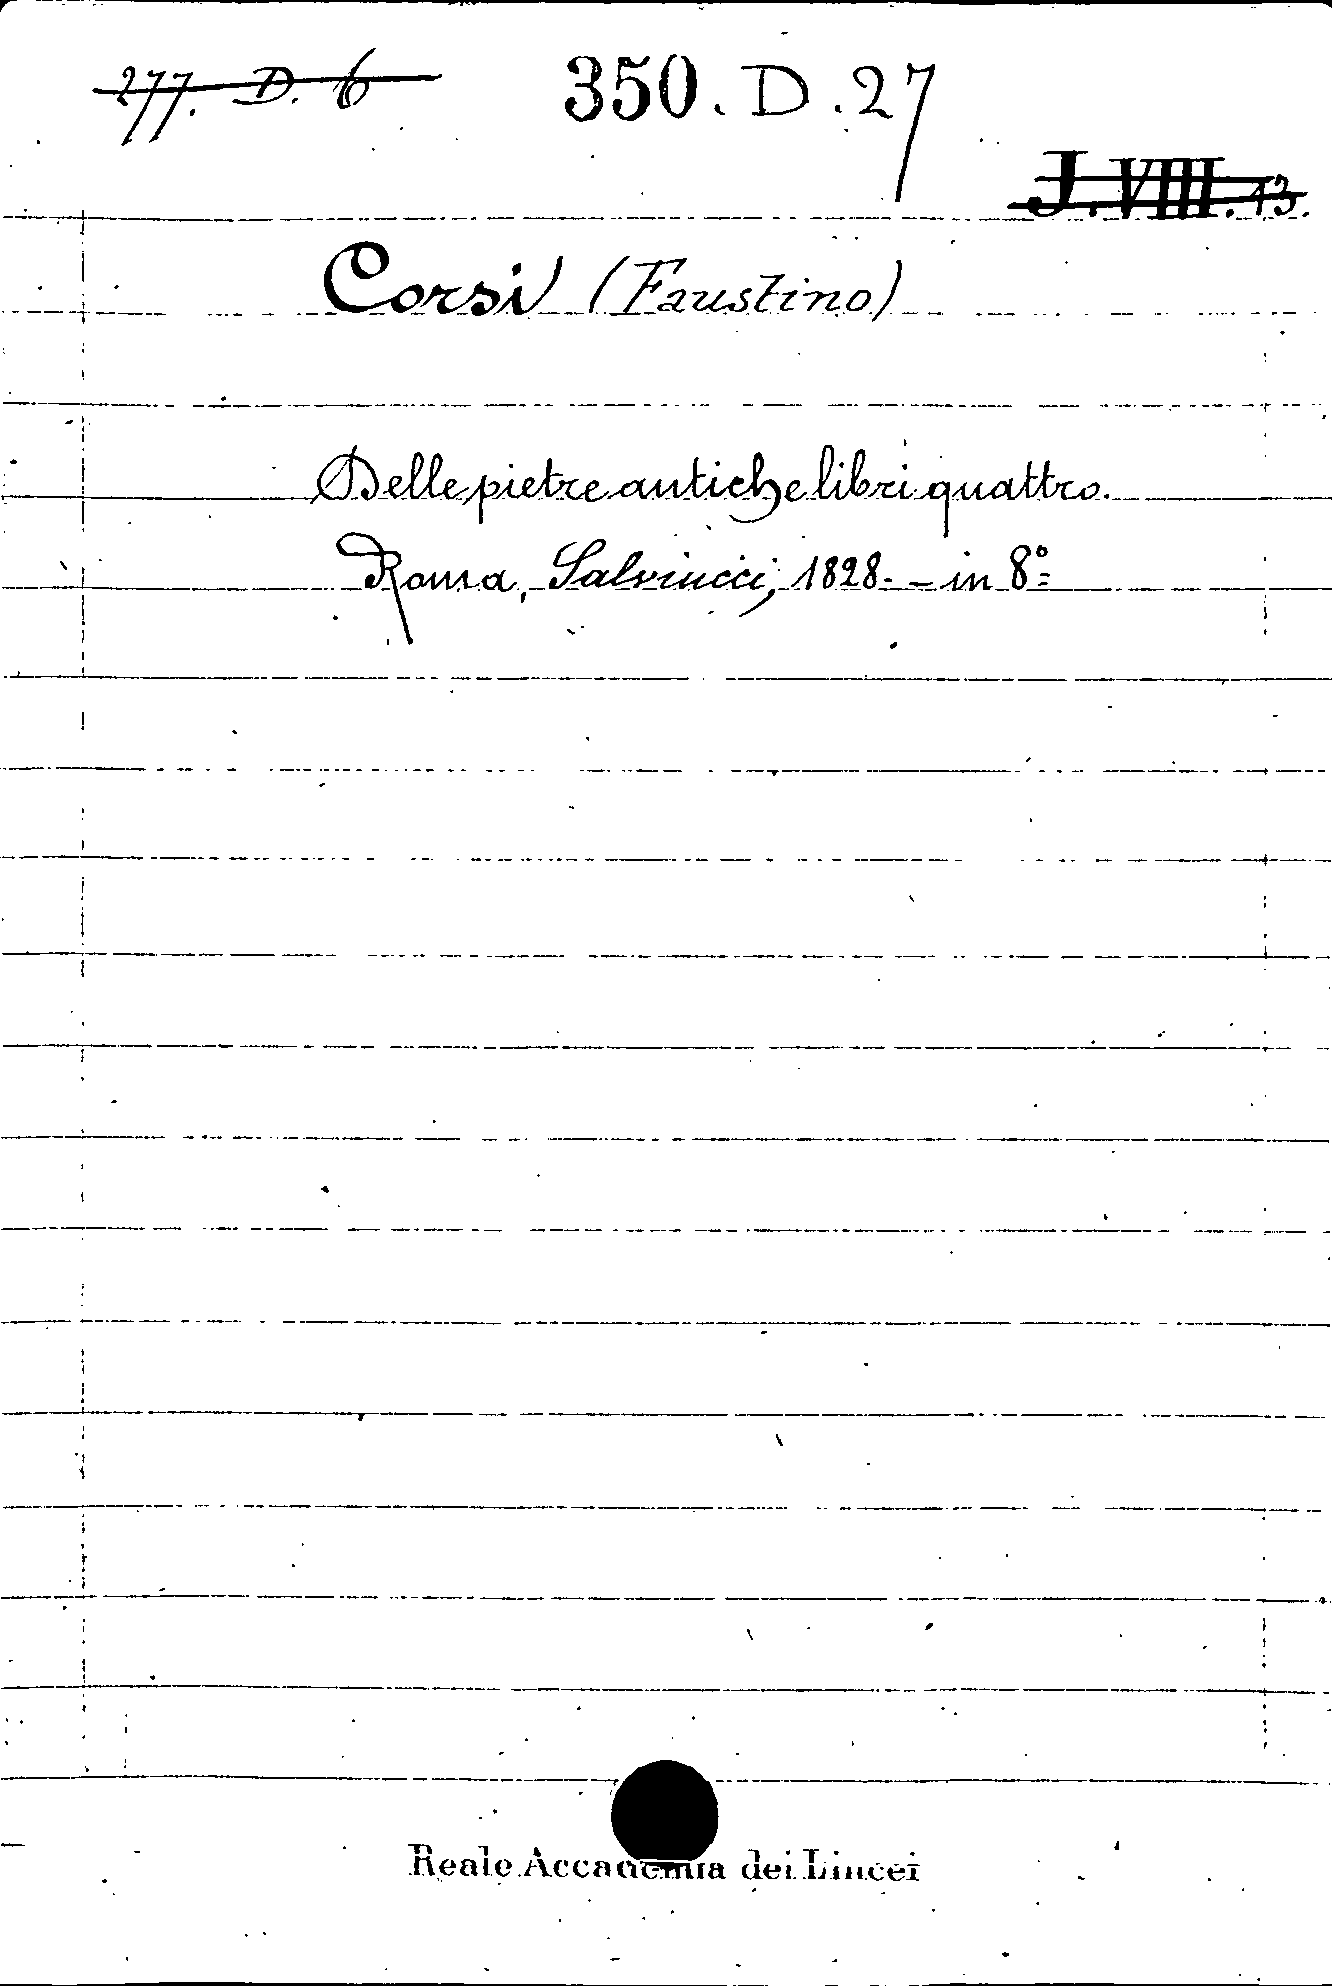 277. D. 6 350. D. 27
J. VIII. 13.
Corsi (Faustino)
Delle pietre antiche libri quattro.
Roma, Salviucci, 1828. - in 8º
Reale Accademia dei Lincei